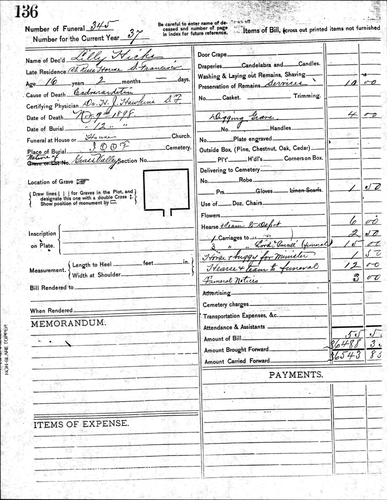 136
Number of Funeral 345
Number for the Current Year 37
Be careful to enter name of deceased and number of page in index for future reference.
Items of Bill, (cross out printed items not furnished
Name of Dec'd Lilly Hicks
Late Residence
San Francisco
Age 16 years 2 months — days.
Cause of Death
Certifying Physician Dr. H. J. Hawkins S F
Date of Death Nov 9th 1898
Date of Burial " 12 " "
Funeral at House or Church.
Place of Burial I O O F Cemetery.
Grave or Lot No. Section No.
Location of Grave
Draw lines ( | ) for Graves in the Plot, and designate this one with a double Cross
Show position of monument by
Inscription on Plate.
Measurement. Length to Heel feet in.
Width at Shoulder
Bill Rendered to
When Rendered
MEMORANDUM.
ITEMS OF EXPENSE.
Door Crape
Draperies Candelabra and Candles.
Washing & Laying out Remains, Shaving
Preservation of Remains Services 10 00
No. Casket. Trimming.
Digging Grave 4 00
No. Handles
Plate engraved
Outside Box, (Pine, Chestnut, Oak, Cedar)
Pl'f W'd's Corners on Box.
Delivering to Cemetery
No. Robe
Prs. Gloves 1 50
Use of Doz. Chairs
Flowers
Hearse Team to Depot 6 00
1 Carriages to " " 2 50
3 " " (funeral) 15 00
Horse & buggy for Minister 1 50
Hearse & team to funeral 12 00
Funeral Notices 3 00
Advertising
Cemetery charges
Transportation Expenses, &c.
Attendance & Assistants
Amount of Bill 55 5
Amount Brought Forward 36488 3
Amount Carried Forward 36543 85
PAYMENTS.